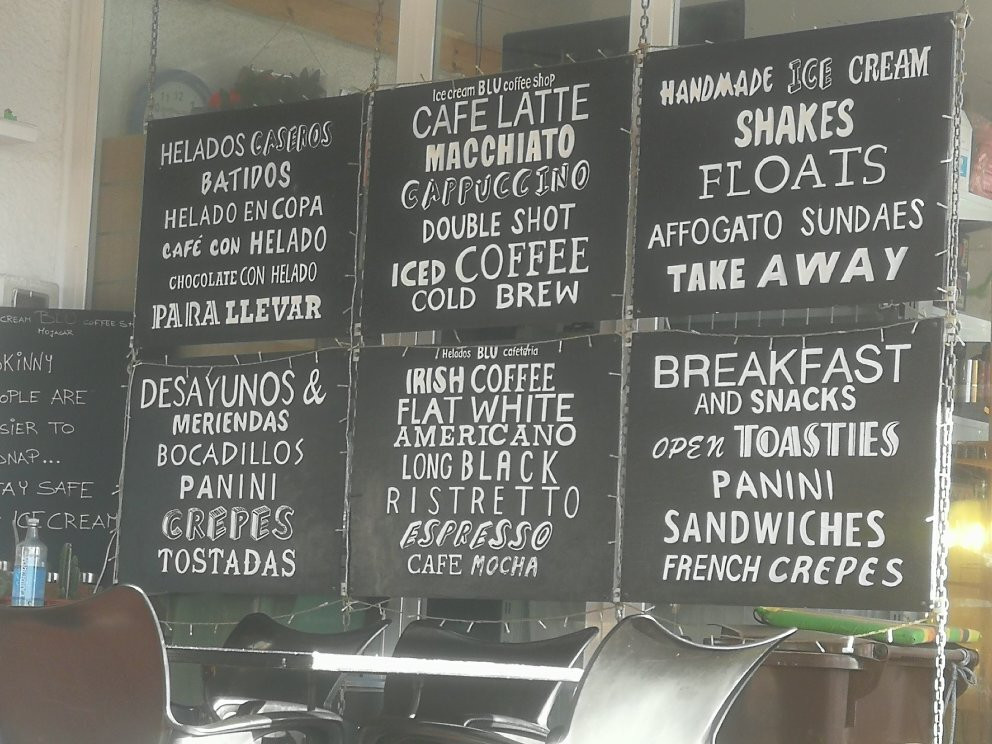 HELADOS CASEROS
BATIDOS
HELADO EN COPA
CAFÉ CON HELADO
CHOCOLATE CON HELADO
PARA LLEVAR
Ice cream BLU coffee shop
CAFE LATTE
MACCHIATO
CAPPUCCINO
DOUBLE SHOT
ICED COFFEE
COLD BREW
HANDMADE ICE CREAM
SHAKES
FLOATS
AFFOGATO SUNDAES
TAKE AWAY
DESAYUNOS &
MERIENDAS
BOCADILLOS
PANINI
CREPES
TOSTADAS
Helados BLU cafetería
IRISH COFFEE
FLAT WHITE
AMERICANO
LONG BLACK
RISTRETTO
ESPRESSO
CAFE MOCHA
BREAKFAST
AND SNACKS
OPEN TOASTIES
PANINI
SANDWICHES
FRENCH CREPES
CREAM BLU COFFEE SH
MOJACAR
SKINNY
OPLE ARE
SIER TO
DNAP...
TAY SAFE
ICECREAM